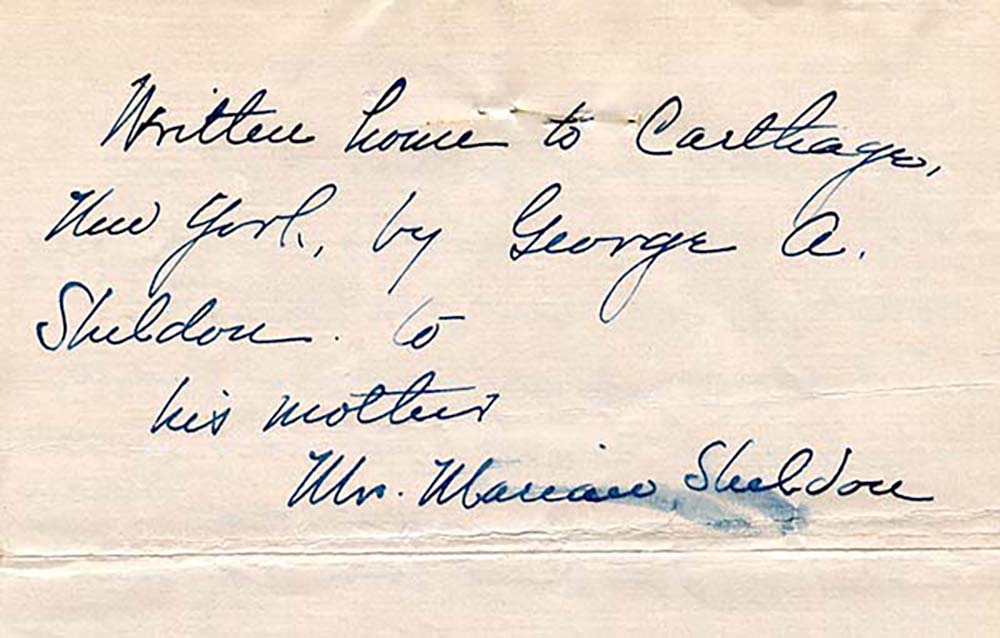 Written home to Carthage,
New York, by George A.
Sheldon. to
his mother
Mrs. Marian Sheldon